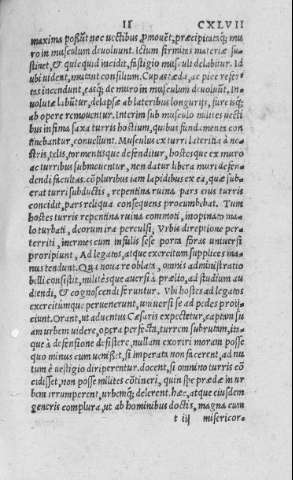 II CXLVII
maxima possunt nec vectibus promovent, præcipitantq; mu
ro in musculum devolvunt. Ictum firmitas materiæ su-
stinet, & quicquid incidit, fastigio musculi delabitur. Id
ubi vident, mutant consilium. Cupas tæda, ac pice refer
tas incendunt, easq; de muro in musculum devolvunt. In
volutæ labuntur, delapsæ ab lateribus longuriis, furcisq;
ab opere removentur. Interim sub musculo milites vecti
bus infima saxa turris hostium, quibus fundamenta con
tinebantur, convellunt. Musculus ex turri lateritia à no-
stris, telis, tormentisque defenditur, hostesque ex muro
ac turribus submoventur, non datur libera muri defen-
dendi facultas. cõpluribus iam lapidibus ex ea, quæ sub-
erat turri subductis, repentina ruina pars eius turris
concidit, pars reliqua consequens procumbebat. Tum
hostes turris repentina ruina commoti, inopinato ma-
lo turbati, deorum ira perculsi, Vrbis direptione per-
territi, inermes cum infulis sese porta foras universi
proripiunt. Ad legatos, atque exercitum supplices ma-
nus tendunt. Qua nova re oblata, omnis administratio
belli consistit, militésque aversi à prælio, ad studium au
diendi, & cognoscendi feruntur. Vbi hostes ad legatos
exercitumque pervenerunt, universi se ad pedes proii-
ciunt. Orant, ut adventus Cæsaris expectetur, captam su
am urbem videre, opera perfecta, turrem subrutam, ita-
que à defensione desistere, nullam exoriri moram posse
quo minus cum venisset, si imperata non facerent, ad nu
tum è vestigio diriperentur. docent, si omnino turris cõ
cidisset, non posse milites cõtineri, quin spe prædæ in ur
bem irrumperent, urbemq; delerent. hæc, atque eiusdem
generis complura, ut ab hominibus doctis, magna cum
t iij misericor-